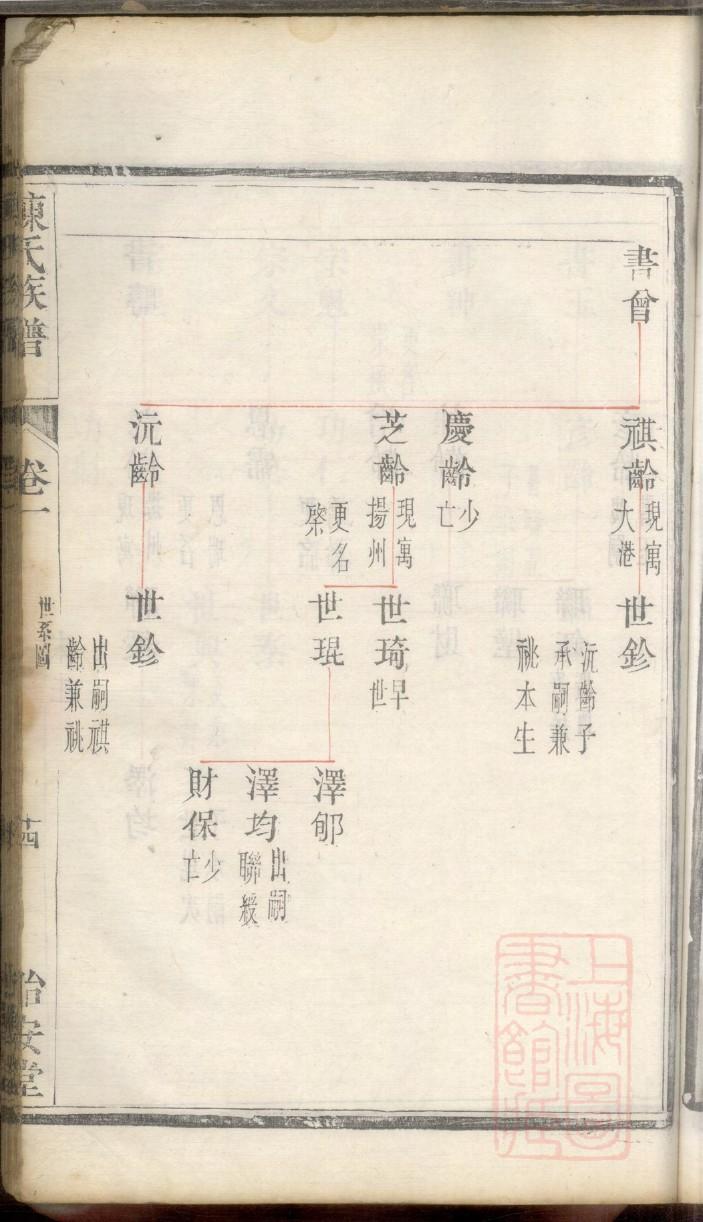 書曾
祺齡
現寓
大港
慶齡
少
亡
芝齡
現寓
揚州
更名
棨
沅齡
世鉁
沅齡子
承嗣兼
祧本生
世琦
早
世
世琨
世鉁
出嗣祺
齡兼祧
澤郇
澤均
出嗣
聯綬
財保
少
亡
陳氏族譜
卷一
世系圖
怡安堂
上海圖
書館藏